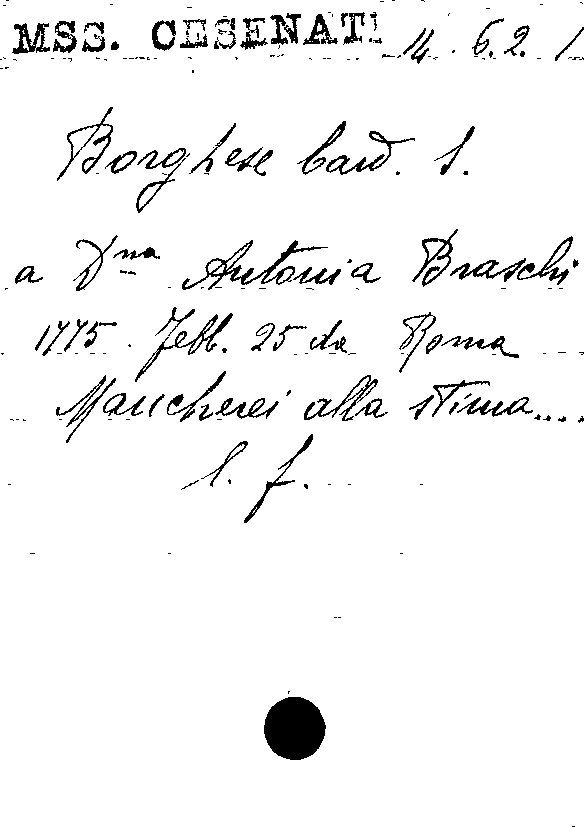 MSS. CESENATI 14. 6. 2. 1
Borghese Card. S.
a Dna Antonia Braschi
1775. Febb. 25 da Roma
Mancherei alla stima....
l. f.